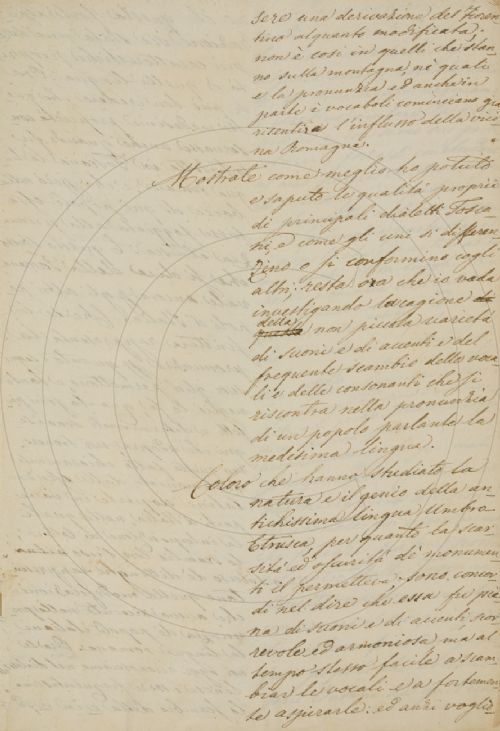 sere una derivazione del Fioren-
tino alquanto modificata;
non è così in quelli che stan-
no sulla montagna, nè quali
e la pronunzia ed anche in
parte i vocaboli cominciano già
risentire l'influsso della vici
na Romagna.
Mostrate come meglio ho potuto
e saputo le qualità proprie
di principali dialetti Tosca
ni, e come gli uni si differen-
zino o si conformino cogli
altri; resta ora che io vada
investigando la cagione
della non piccola varietà
di suoni e di accenti e del
frequente scambio delle voca
li e delle consonanti che si
riscontra nella pronunzia
di un popolo parlante la
medesima lingua.
Coloro che hanno studiato la
natura e il genio della an
tichissima lingua Umbro
Etrusca, per quanto la scar
sità ed oscurità di monumen
ti il permetteva, sono concor
di nel dire che essa fu pie
na di suoni e di accenti
revole ed armoniosa, ma al
tempo stesso facile a scam
biar le vocali e a fortemen
te aspirarle: ed anzi voglio